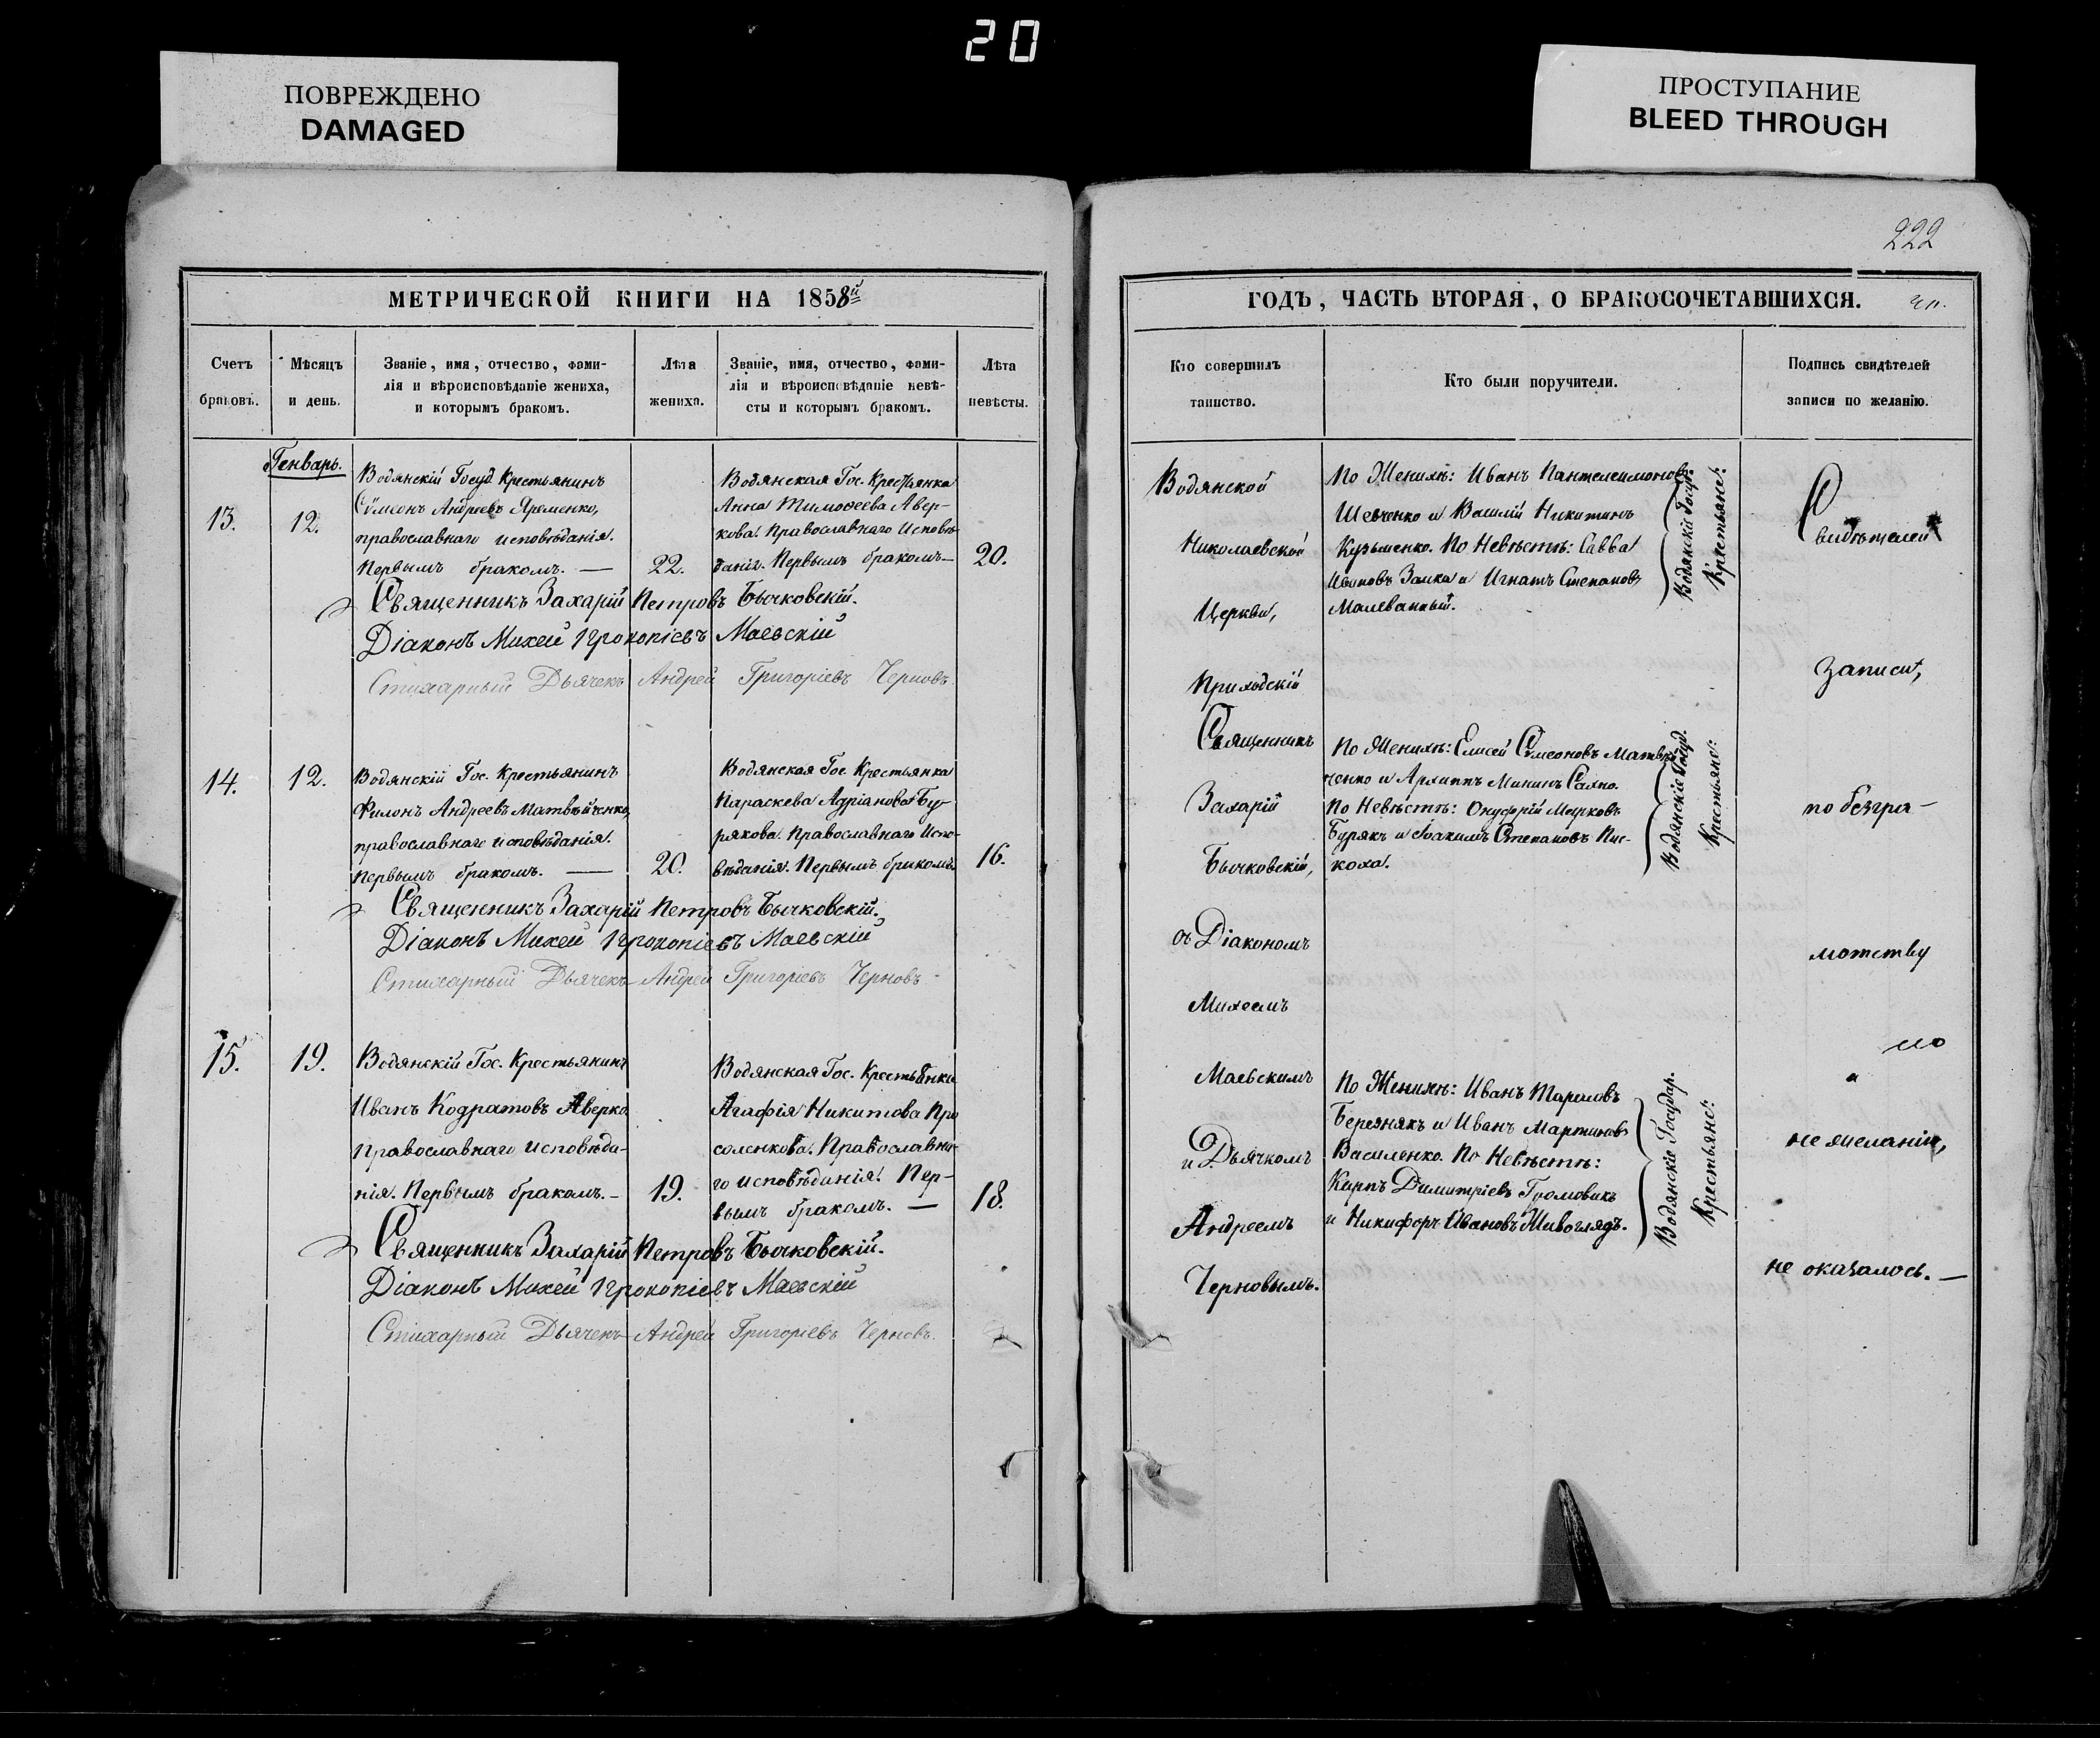 20
ПОВРЕЖДЕНО
DAMAGED
ПРОСТУПАНИЕ
BLEED THROUGH
222
МЕТРИЧЕСКОЙ КНИГИ НА 1858й
Счетъ браковъ.
Мѣсяцъ и день.
Званіе, имя, отчество, фами-
лія и вѣроисповѣданіе жениха,
и которымъ бракомъ.
Лѣта жениха.
Званіе, имя, отчество, фами-
лія и вѣроисповѣданіе невѣ-
сты и которымъ бракомъ.
Лѣта невѣсты.
Генварь.
13.
12.
Водянскій Госуд. Крестьянинъ
Сѵмеонъ Андреевъ Яременко,
православнаго исповѣданія.
Первымъ бракомъ. —
22.
Водянская Гос. Крестьянка
Анна Тимоѳеева Авер-
кова. Православнаго Исповѣ-
данія. Первымъ бракомъ —
20.
Священникъ Захарій Петровъ Бычковскій.
Діаконъ Михей Прокопіевъ Маевскій
Стихарный Дьячекъ Андрей Григоріевъ Черновъ
14.
12.
Водянскій Гос. Крестьянинъ
Филонъ Андреевъ Матвѣйченко,
православнаго исповѣданія.
Первымъ бракомъ. —
20.
Водянская Гос. Крестьянка
Параскева Адріанова Бу-
рякова. Православнаго Испо-
вѣданія. Первымъ бракомъ.
16.
Священникъ Захарій Петровъ Бычковскій.
Діаконъ Михей Прокопіевъ Маевскій
Стихарный Дьячекъ Андрей Григоріевъ Черновъ
15.
19.
Водянскій Гос. Крестьянинъ
Иванъ Кодратовъ Аверко
Православнаго исповѣда-
нія. Первымъ бракомъ. —
19.
Водянская Гос. Крестьянка
Агафія Никитова Про
соленкова. Православна-
го исповѣданія. Пер-
вымъ бракомъ. —
18.
Священникъ Захарій Петровъ Бычковскій.
Діаконъ Михей Прокопіевъ Маевскій
Стихарный Дьячекъ Андрей Григоріевъ Черновъ.
ГОДЪ, ЧАСТЬ ВТОРАЯ, О БРАКОСОЧЕТАВШИХСЯ.
Кто совершилъ
таинство.
Кто были поручители.
Подпись свидѣтелей
записи по желанію.
Водянской
Николаевской
Церкви,
Приходскій
Священникъ
Захарій
Бычковскій,
съ Діакономъ
Михеемъ
Маевскимъ
и Дьячкомъ
Андреемъ
Черновымъ.
По Женихѣ: Иванъ Пантелеимоновъ
Шевченко и Василій Никитинъ
Кузьменко. По Невѣстѣ: Савва
Ивановъ Заика и Игнатъ Степановъ
Малеванный.
Водянскіе Госуд.
Крестьяне:
По Женихѣ: Елисей Сѵмеоновъ Матвѣй
ченко и Архиппъ Мининъ Сахно.
По Невѣстѣ: Онуфрій Марковъ
Бурякъ и Іоакимъ Степановъ Пис-
коха.
Водянскіе Госуд.
Крестьяне:
По Женихѣ: Иванъ Тарасовъ
Березнякъ и Иванъ Мартиновъ
Василенко. По Невѣстѣ:
Карпъ Димитріевъ Громовикъ
и Никифоръ Ивановъ Живоглядъ.
Водянскіе Государ.
Крестьяне:
Свидѣтелей
Записи,
по безгра-
мотству
и
по
не желанію,
не оказалось. —